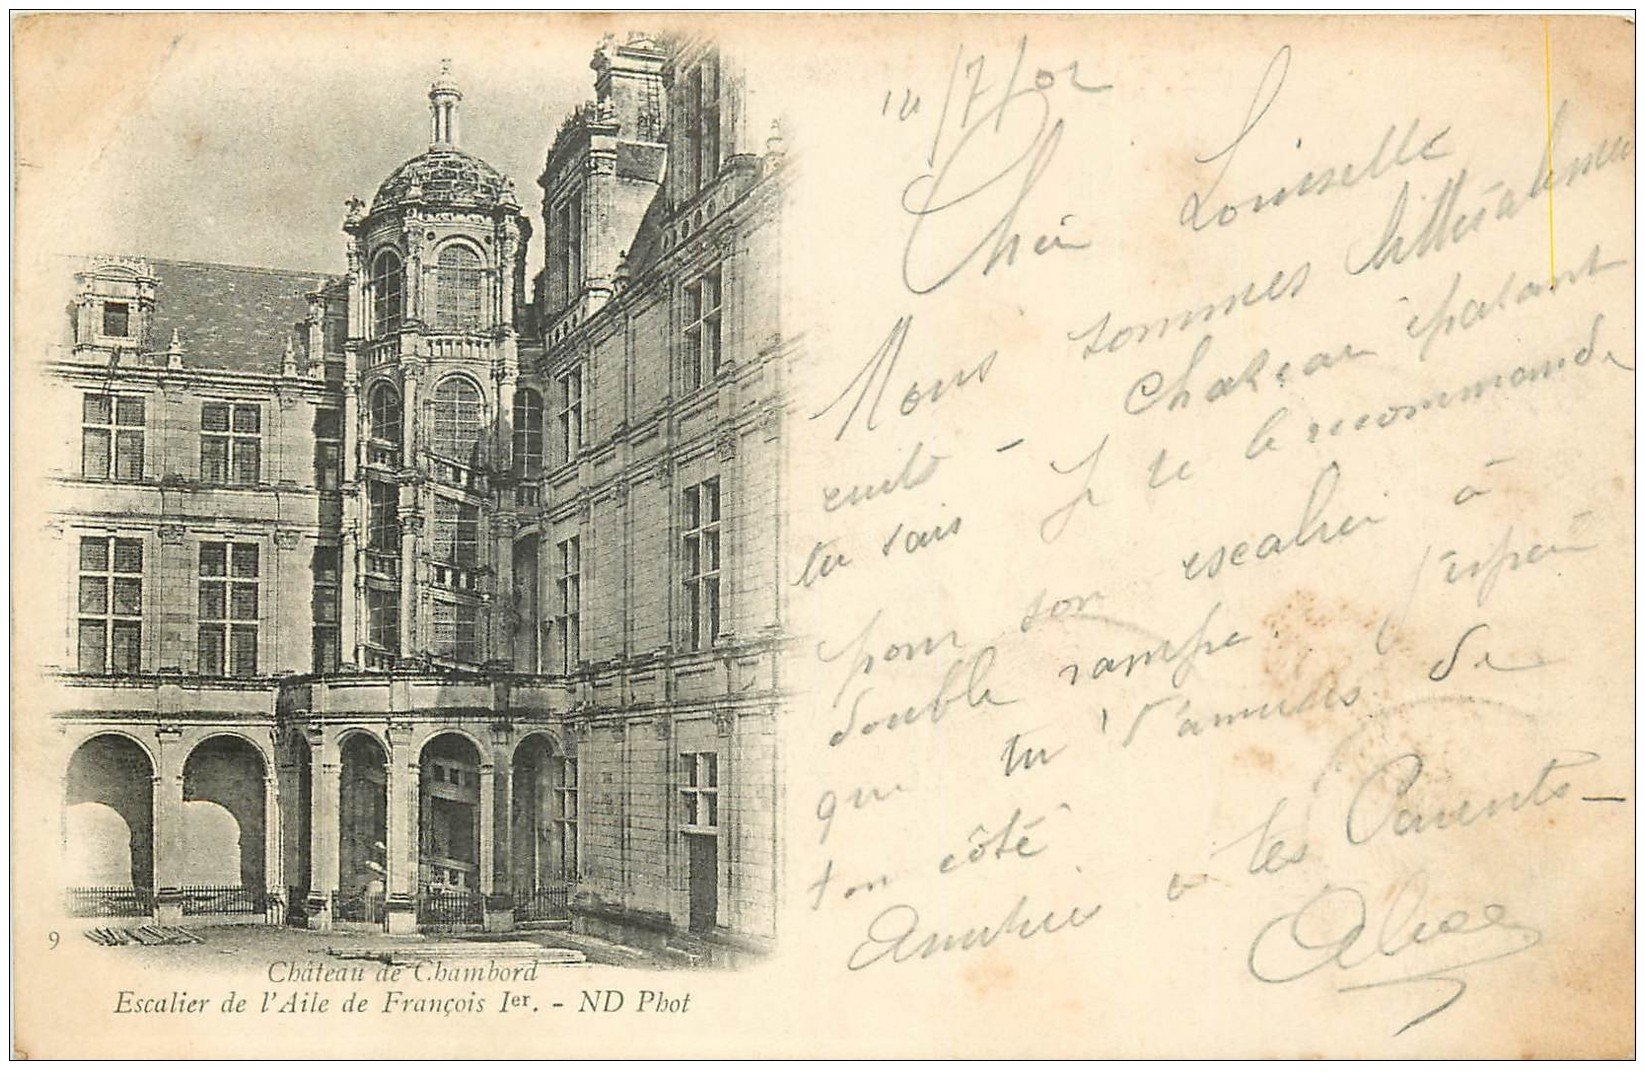 14/7/02
Chère Louisette
Nous sommes littéralement
cuits - Chateau épatant
tu sais je te le recommande
pour son escalier à
double rampe. J'espère
que tu t'amuses de
ton côté
Amitiés à tes Parents -
Alice
9
Château de Chambord
Escalier de l'Aile de François Ier. - ND Phot